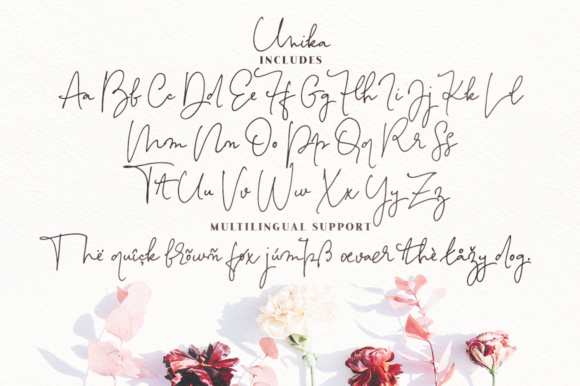 Unika
INCLUDES
Aa Bb Cc Dd Ee Ff Gg Hh Ii Jj Kk Ll
Mm Nn Oo Pp Qq Rr Ss
Tt Uu Vv Ww Xx Yy Zz
MULTILINGUAL SUPPORT
Thë quîçk brõwñ føx júmpß œvær thè łåžy dog.